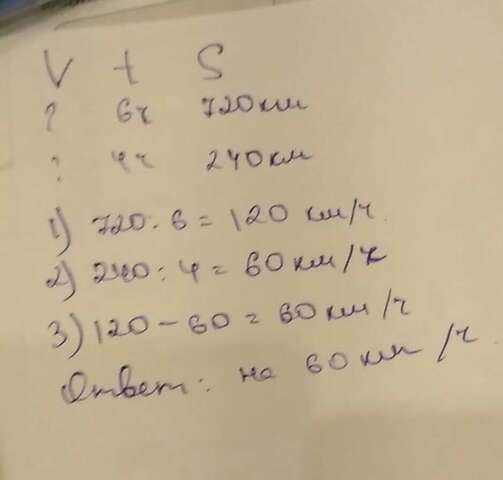 V t S
? 6ч 720км
? 4ч 240км
1) 720:6=120 км/ч.
2) 240:4=60км/ч
3) 120-60=60км/ч
Ответ: на 60км/ч.